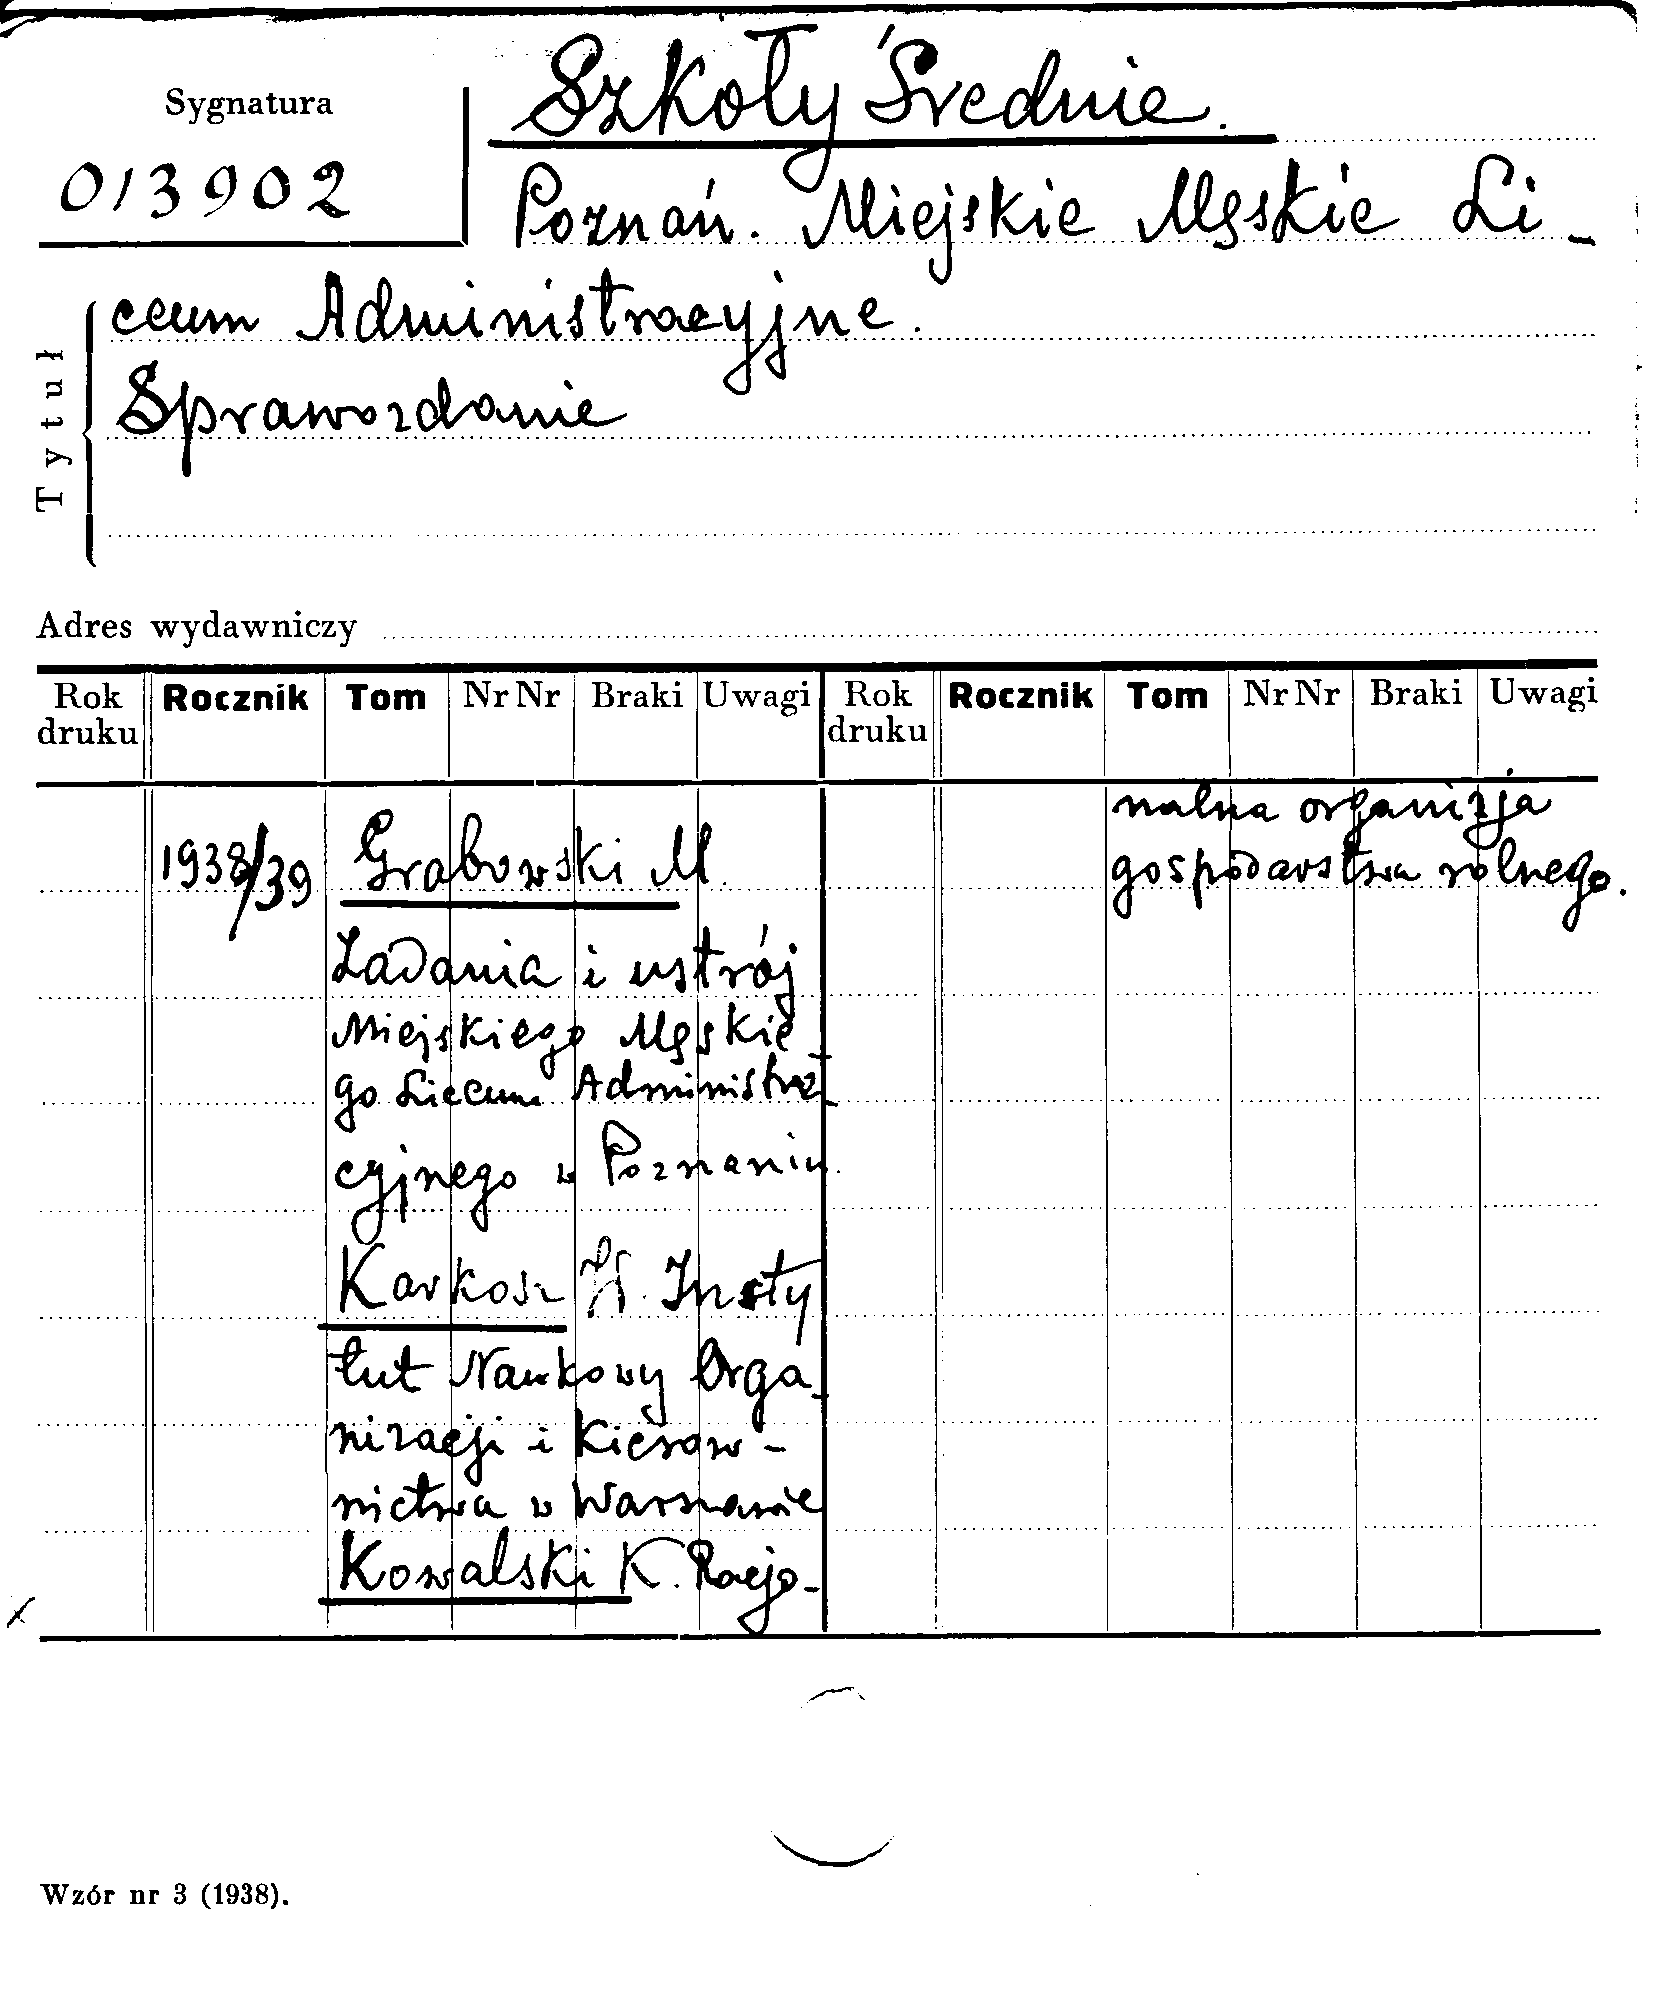 Szkoły Średnie.
Sygnatura
013902
Poznań. Miejskie Męskie Li-
ceum Administracyjne.
Sprawozdanie
Tytuł
Adres wydawniczy
Rok druku Rocznik Tom Nr Nr Braki Uwagi Rok druku Rocznik Tom Nr Nr Braki Uwagi
1938/39 Grabowski M.
Zadania i ustrój
Miejskiego Męskie-
go Liceum Administra-
cyjnego w Poznaniu.
Karkosz Insty
tut Naukowy Orga-
nizacji i Kierow-
nictwa w Warszawie
Kowalski K. Racjo-
nalna organizja
gospodarstwa rolnego.
Wzór nr 3 (1938).